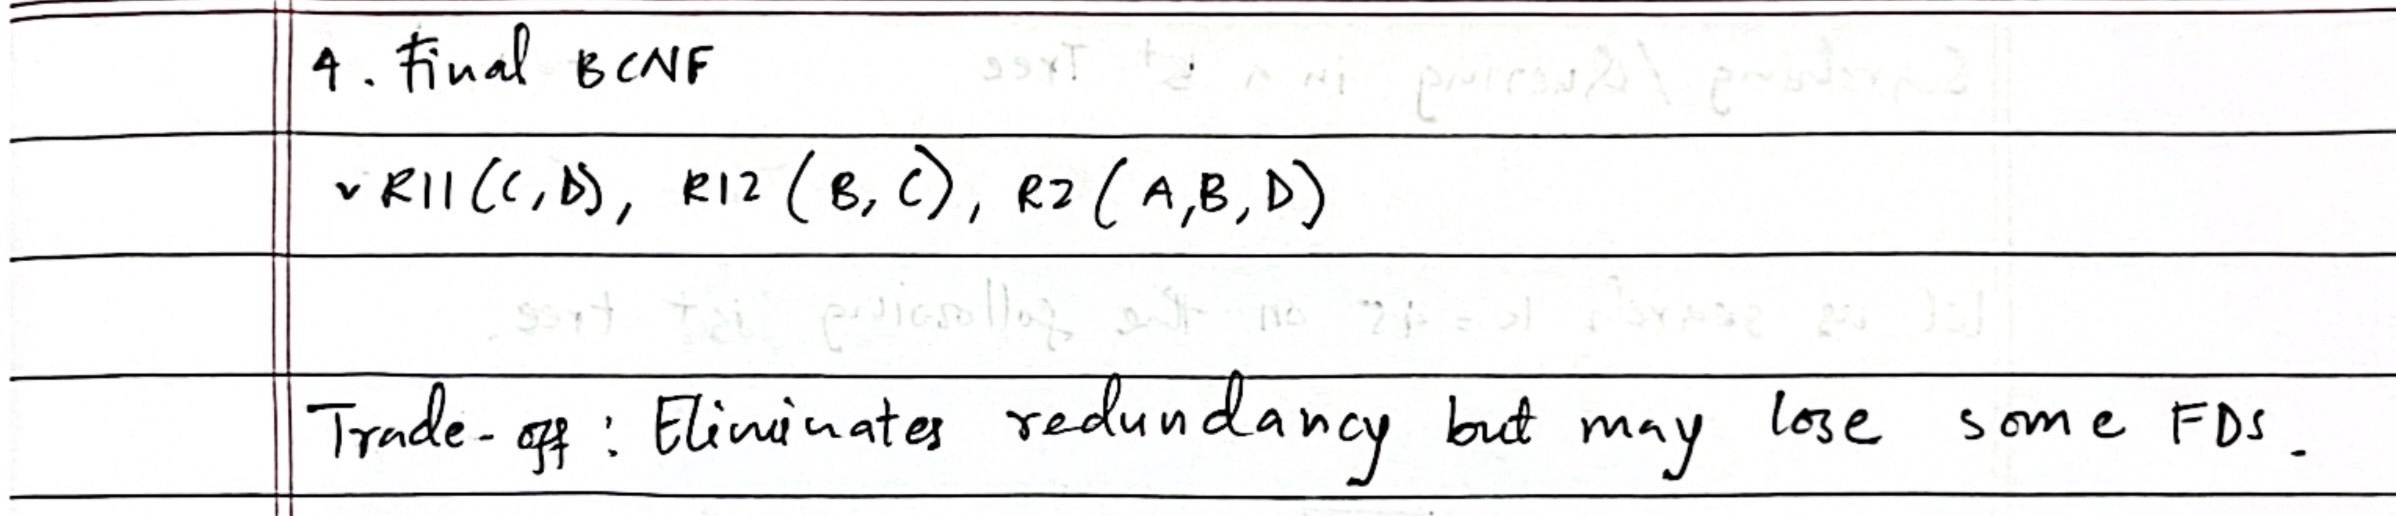 4. Final BCNF
✓ R11 (C, D), R12 (B, C), R2 (A, B, D)
Trade-off: Eliminates redundancy but may lose some FDs.